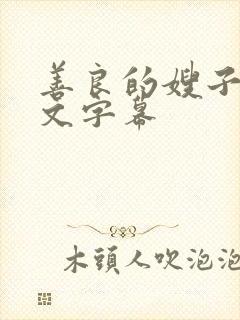 善良的嫂子
文字幕
木頭人吹泡泡